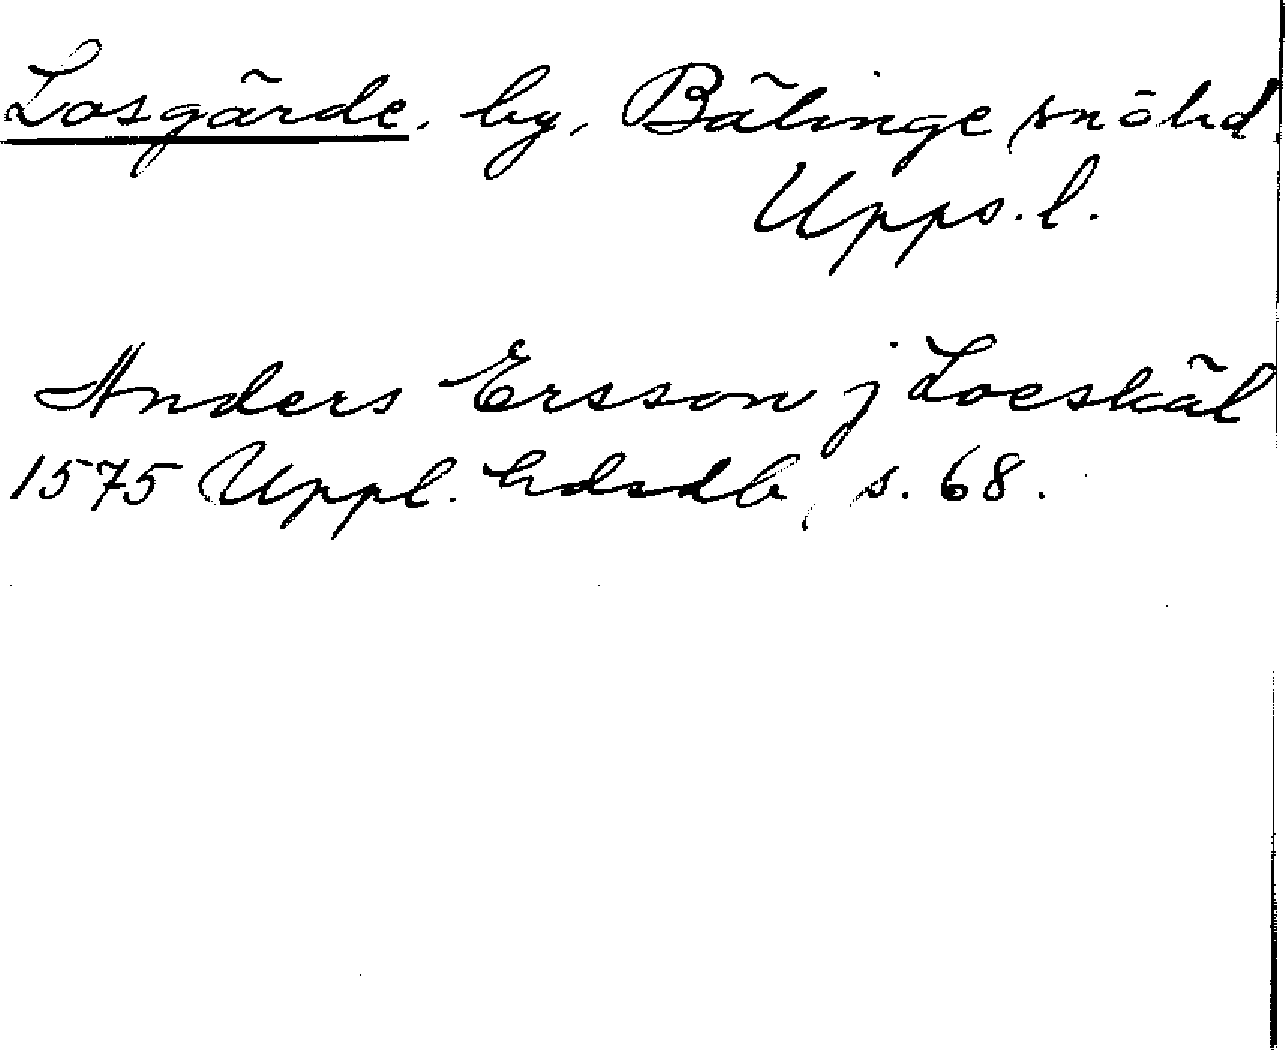 Losgärde, by, Bälinge sn o hd
Upps. l.
Anders Ersson j Loeskäl
1575 Uppl. hdsdb, s. 68.